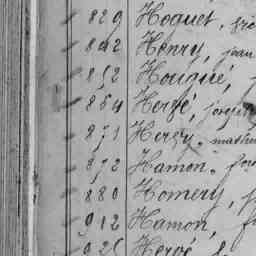 829 Hoquet,
842 Henry, jean
852 Hougué,
854 Hergé, joseph
871 Hergy,
872 Hamon,
880 Homery,
912 Hamon,
925 Hervé